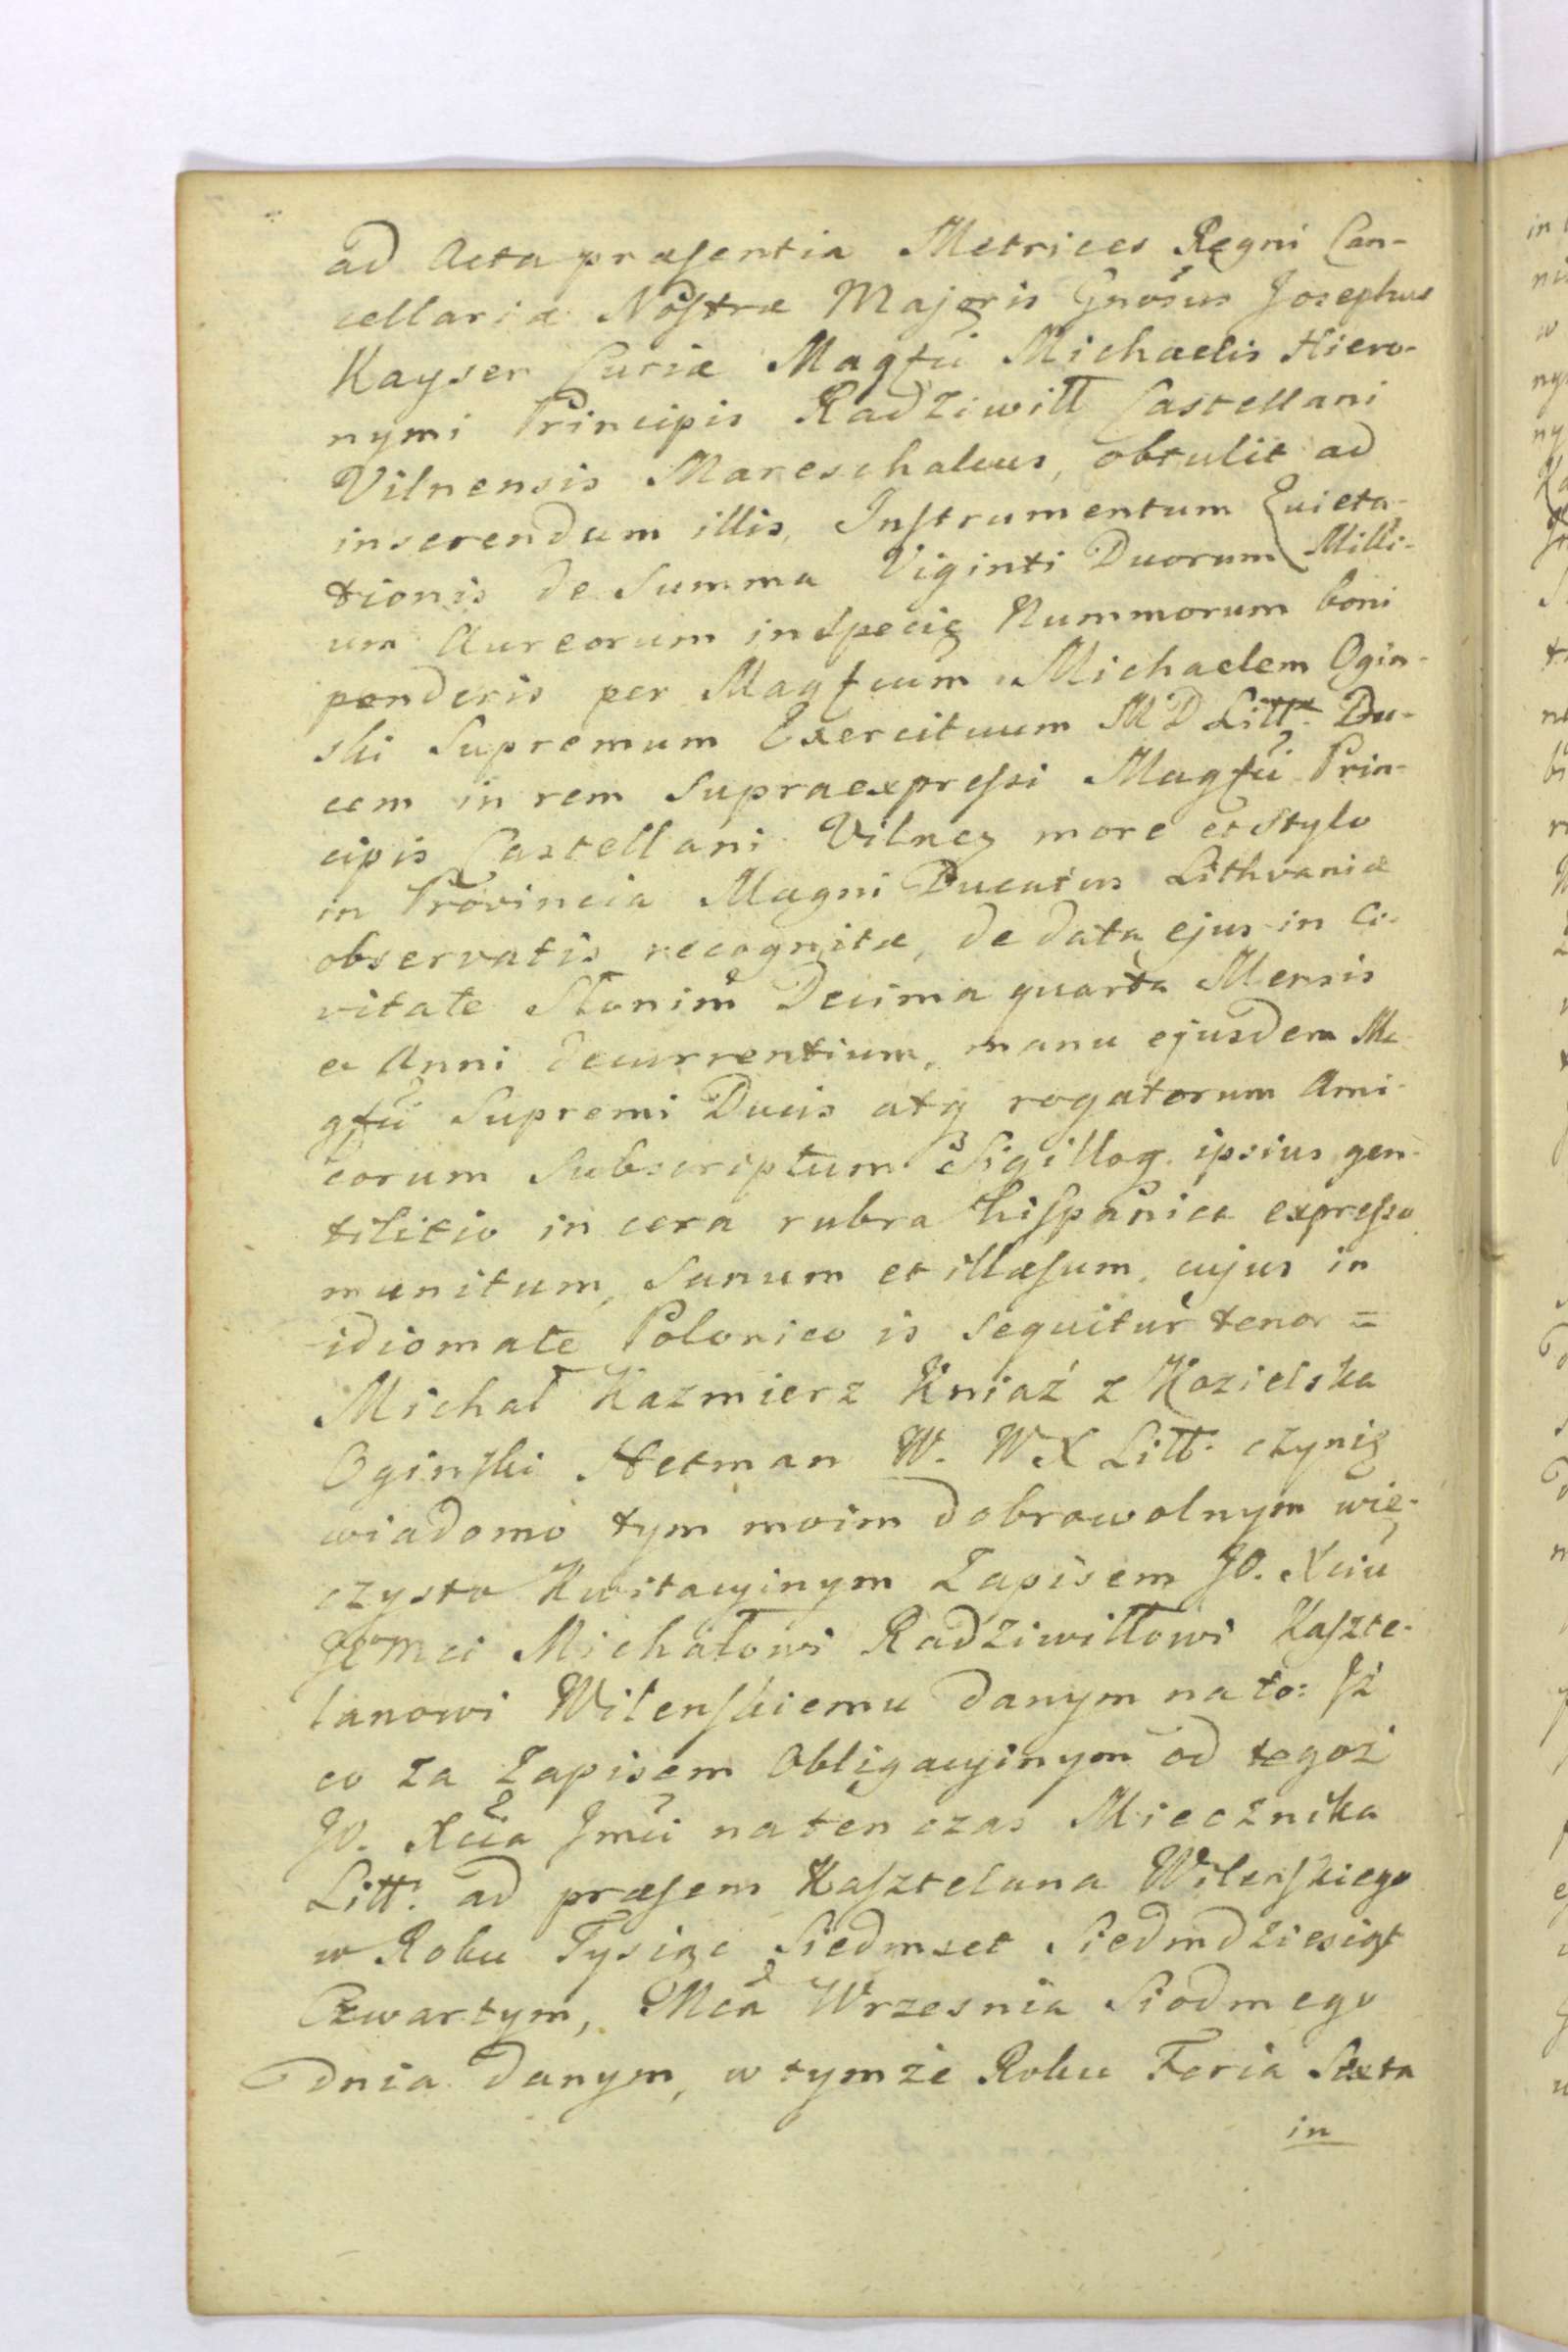 ad Acta præsentia Metrices Regni Can-
cellariæ Nostræ Majoris Gnosus Josephus
Kayser Curiæ Magfci Michaelis Hiero-
nymi Principis Radziwiłł Castellani
Vilnensis Mareschalcus, obtulit ad
inserendum illis, Instrumentum Quieta-
tionis de Summa Viginti Duorum Milli-
um Aureorum in Specie Nummorum boni
ponderis per Magfcum Michaelem Ogin-
ski Supremum Exercituum M D Litt: Du-
cem in rem Supraexpressi Magfci Prin-
cipis Castellani Vilnen more et Stylo
in Provincia Magni Ducatus Lithvaniæ
observatis recognitæ, de data ejus in Ci-
vitate Słonim Decima quarta Mensis
et Anni decurrentium, manu ejusdem Ma-
gfci Supremi Ducis atq rogatorum Ami-
corum Subscriptum Sigilloq. ipsius gen-
tilitio in cera rubra hispanica expresso
munitum, Sanum et illæsum, cujus in
idiomate Polonico is sequitur tenor =
Michał Kazmierz Kniaź z Kozielska
Oginski Hetman W. W X Litt: czynię
wiadomo tym moim dobrowolnym wie-
czysto Kwitacyinym Zapisem JO. Xciu
Jemci Michałowi Radziwiłłowi Kaszte-
lanowi Wilenskiemu danym na to: Iż
co za Zapisem Obligacyinym od tegoż
JO. Xcia Jmci na ten czas Miecznika
Litt: ad præsens Kasztelana Wilenskiego
w Roku Tysiąc Siedmset Siedmdziesiąt
Czwartym, Mca Wrzesnia Siodmego
dnia danym, w tymże Roku Feria Sexta
in